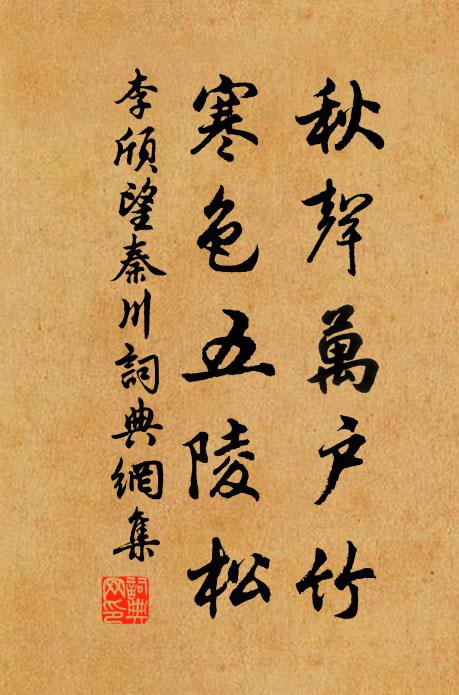 秋聲萬户竹
寒色五陵松
李頎望秦川詞典網集
詞典
网印